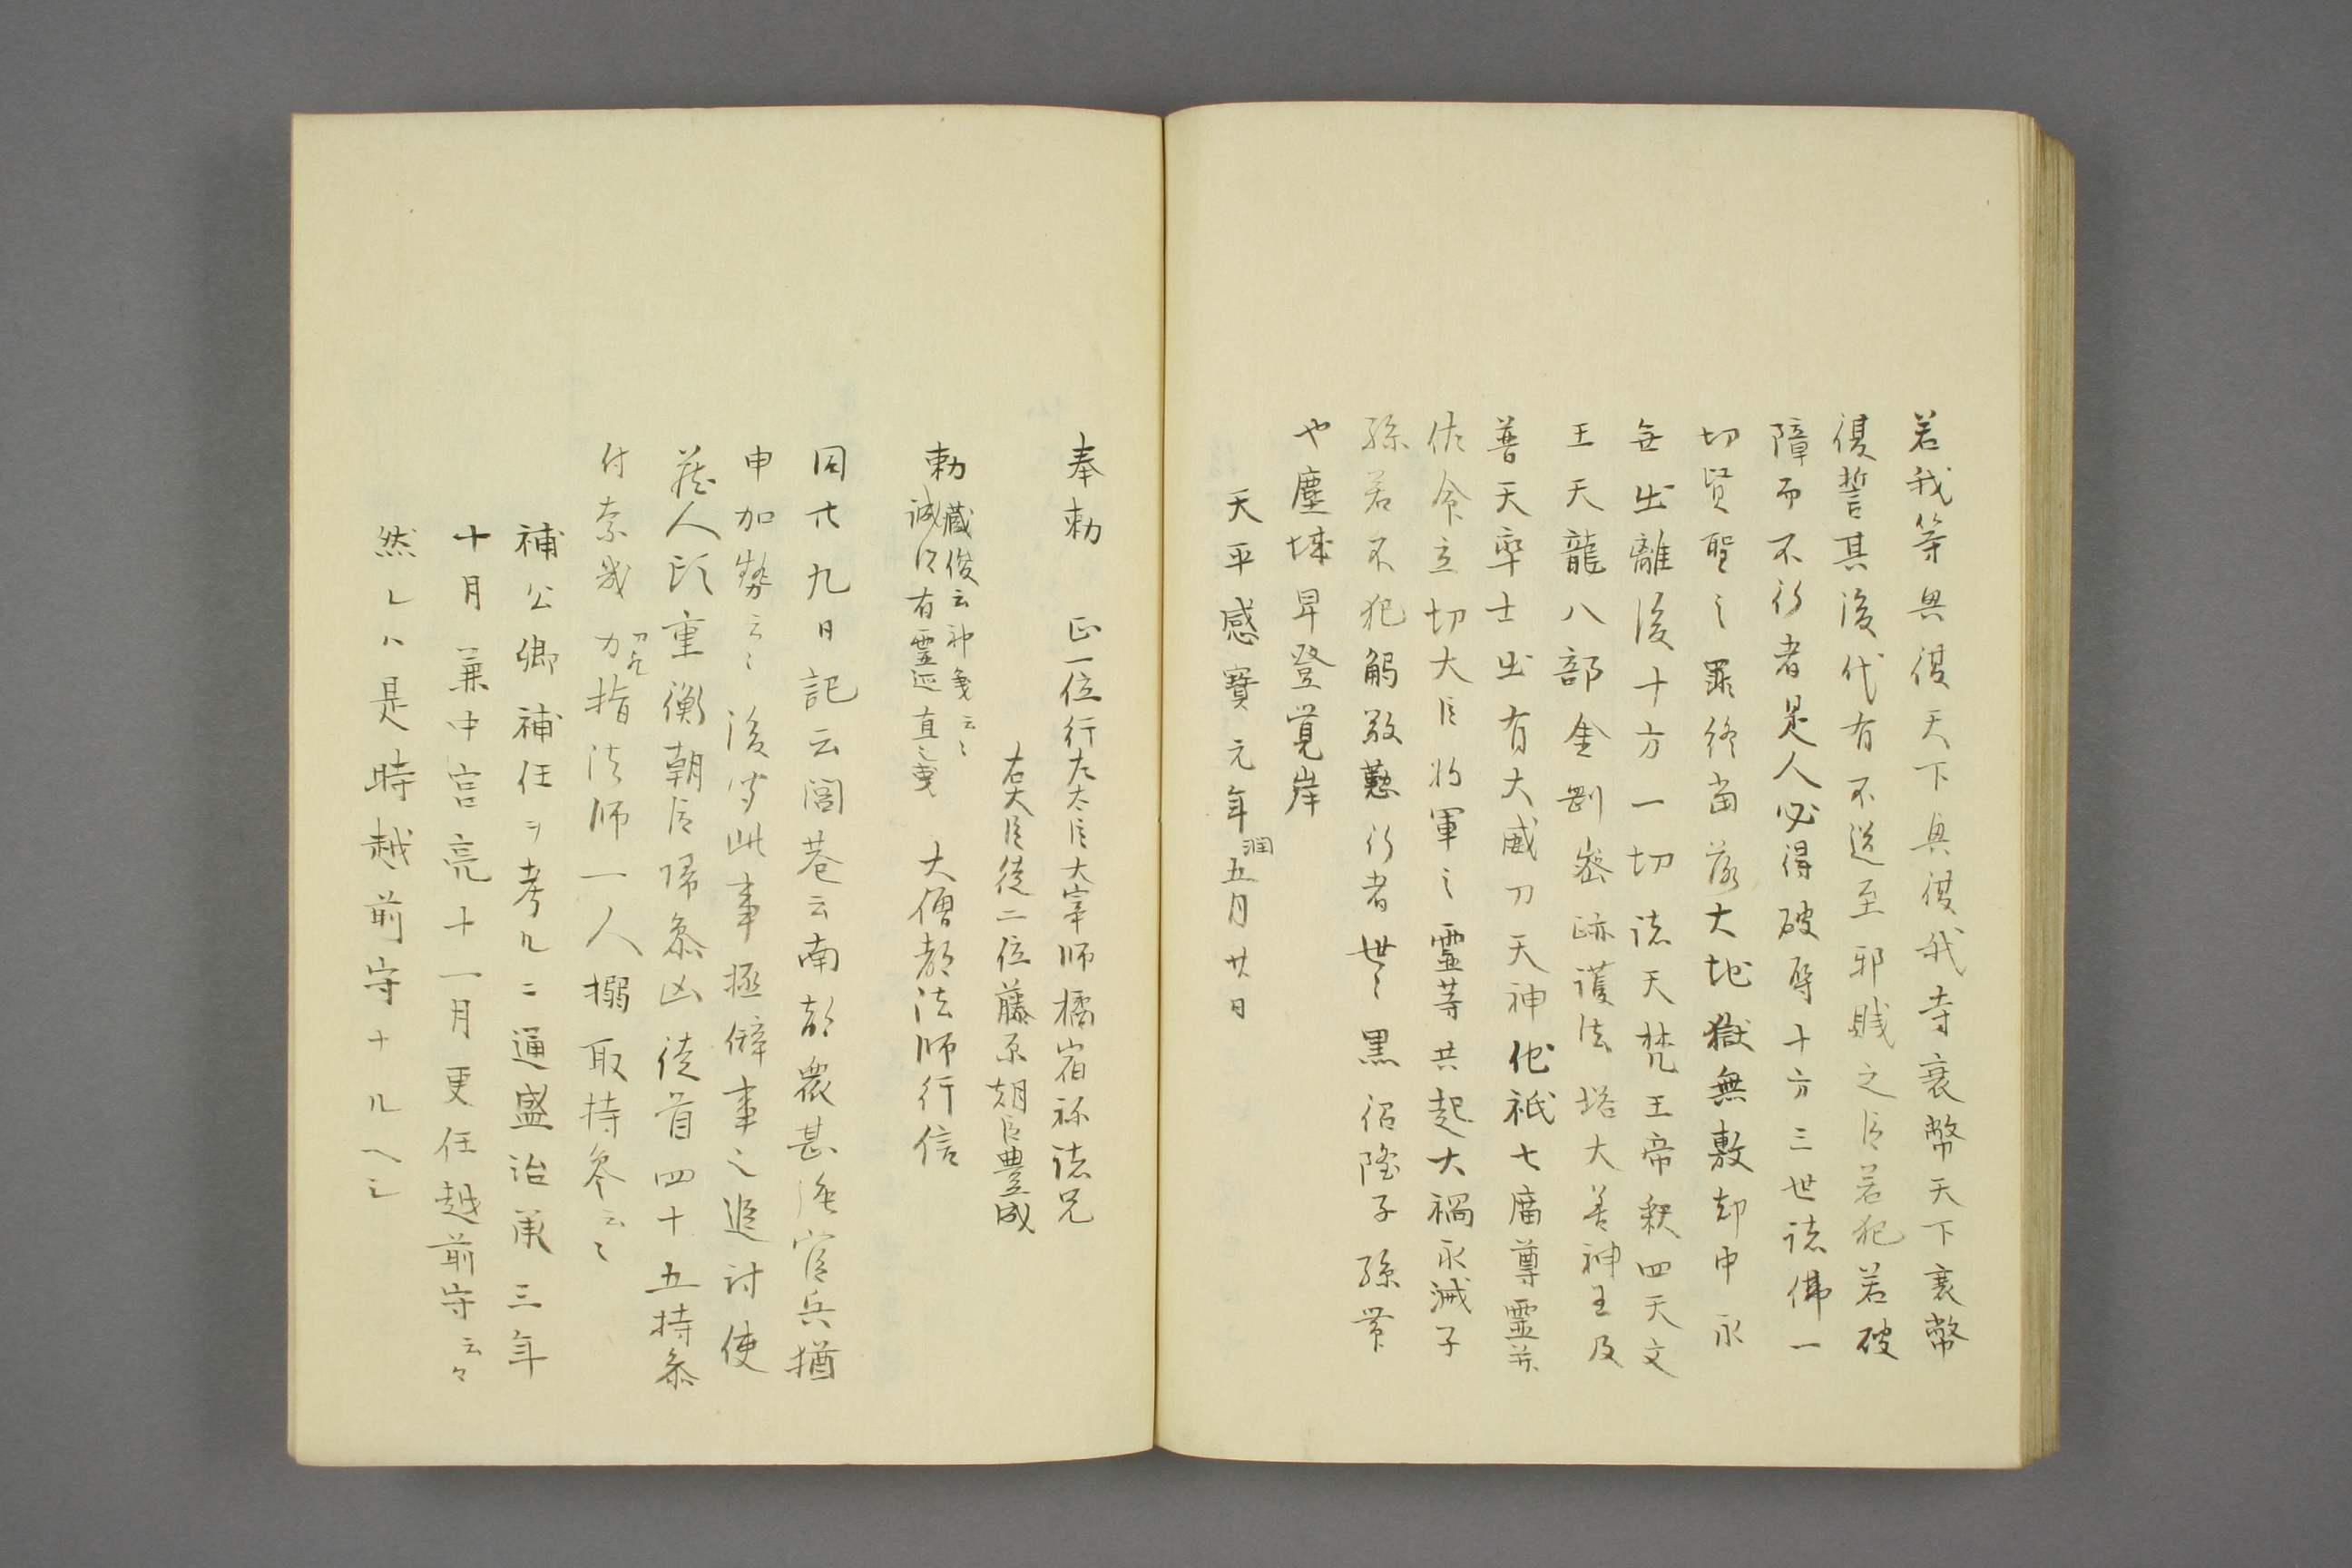 若我寺興復天下興復我寺衰幣天下衰幣
復誓其後代有不道至邪賊之臣若犯若破
障而不行者是人必得破辱十方三世諸佛一
切賢聖之罪終當落大地獄無数却中永
無出離後十方一切諸天梵王帝釈四天文
王天龍八部金剛密跡護法塔大善神王及
普天率土出有大威刀天神地祇七廟尊霊并
佐命立切大臣将軍之霊等共起大禍永滅子
孫若不犯觸敬懃行者世〻黒紹隆子孫共
也塵域早登覚岸
天平感寶元年閏五月廿日
奉勅 正一位行左大臣大宰師橘宿祢諸兄
右大臣従二位藤原朝臣豊成
勅 蔵俊云神筆云〻
誠以有霊迹直之㕝 大僧都法師行信
同廿九日記云閭巷云南都衆甚強官兵猶
申加勢云〻後聞此事極僻事之追討使
蔵人頭重衡朝臣帰参凶徒首四十五持参
付奈幾力指法師一人搦取持参云〻
補公卿補任ヲ考ルニ通盛治承三年
十月兼中宮亮十一月更任越前守云々
然レハ是時越前守ナルヘシ